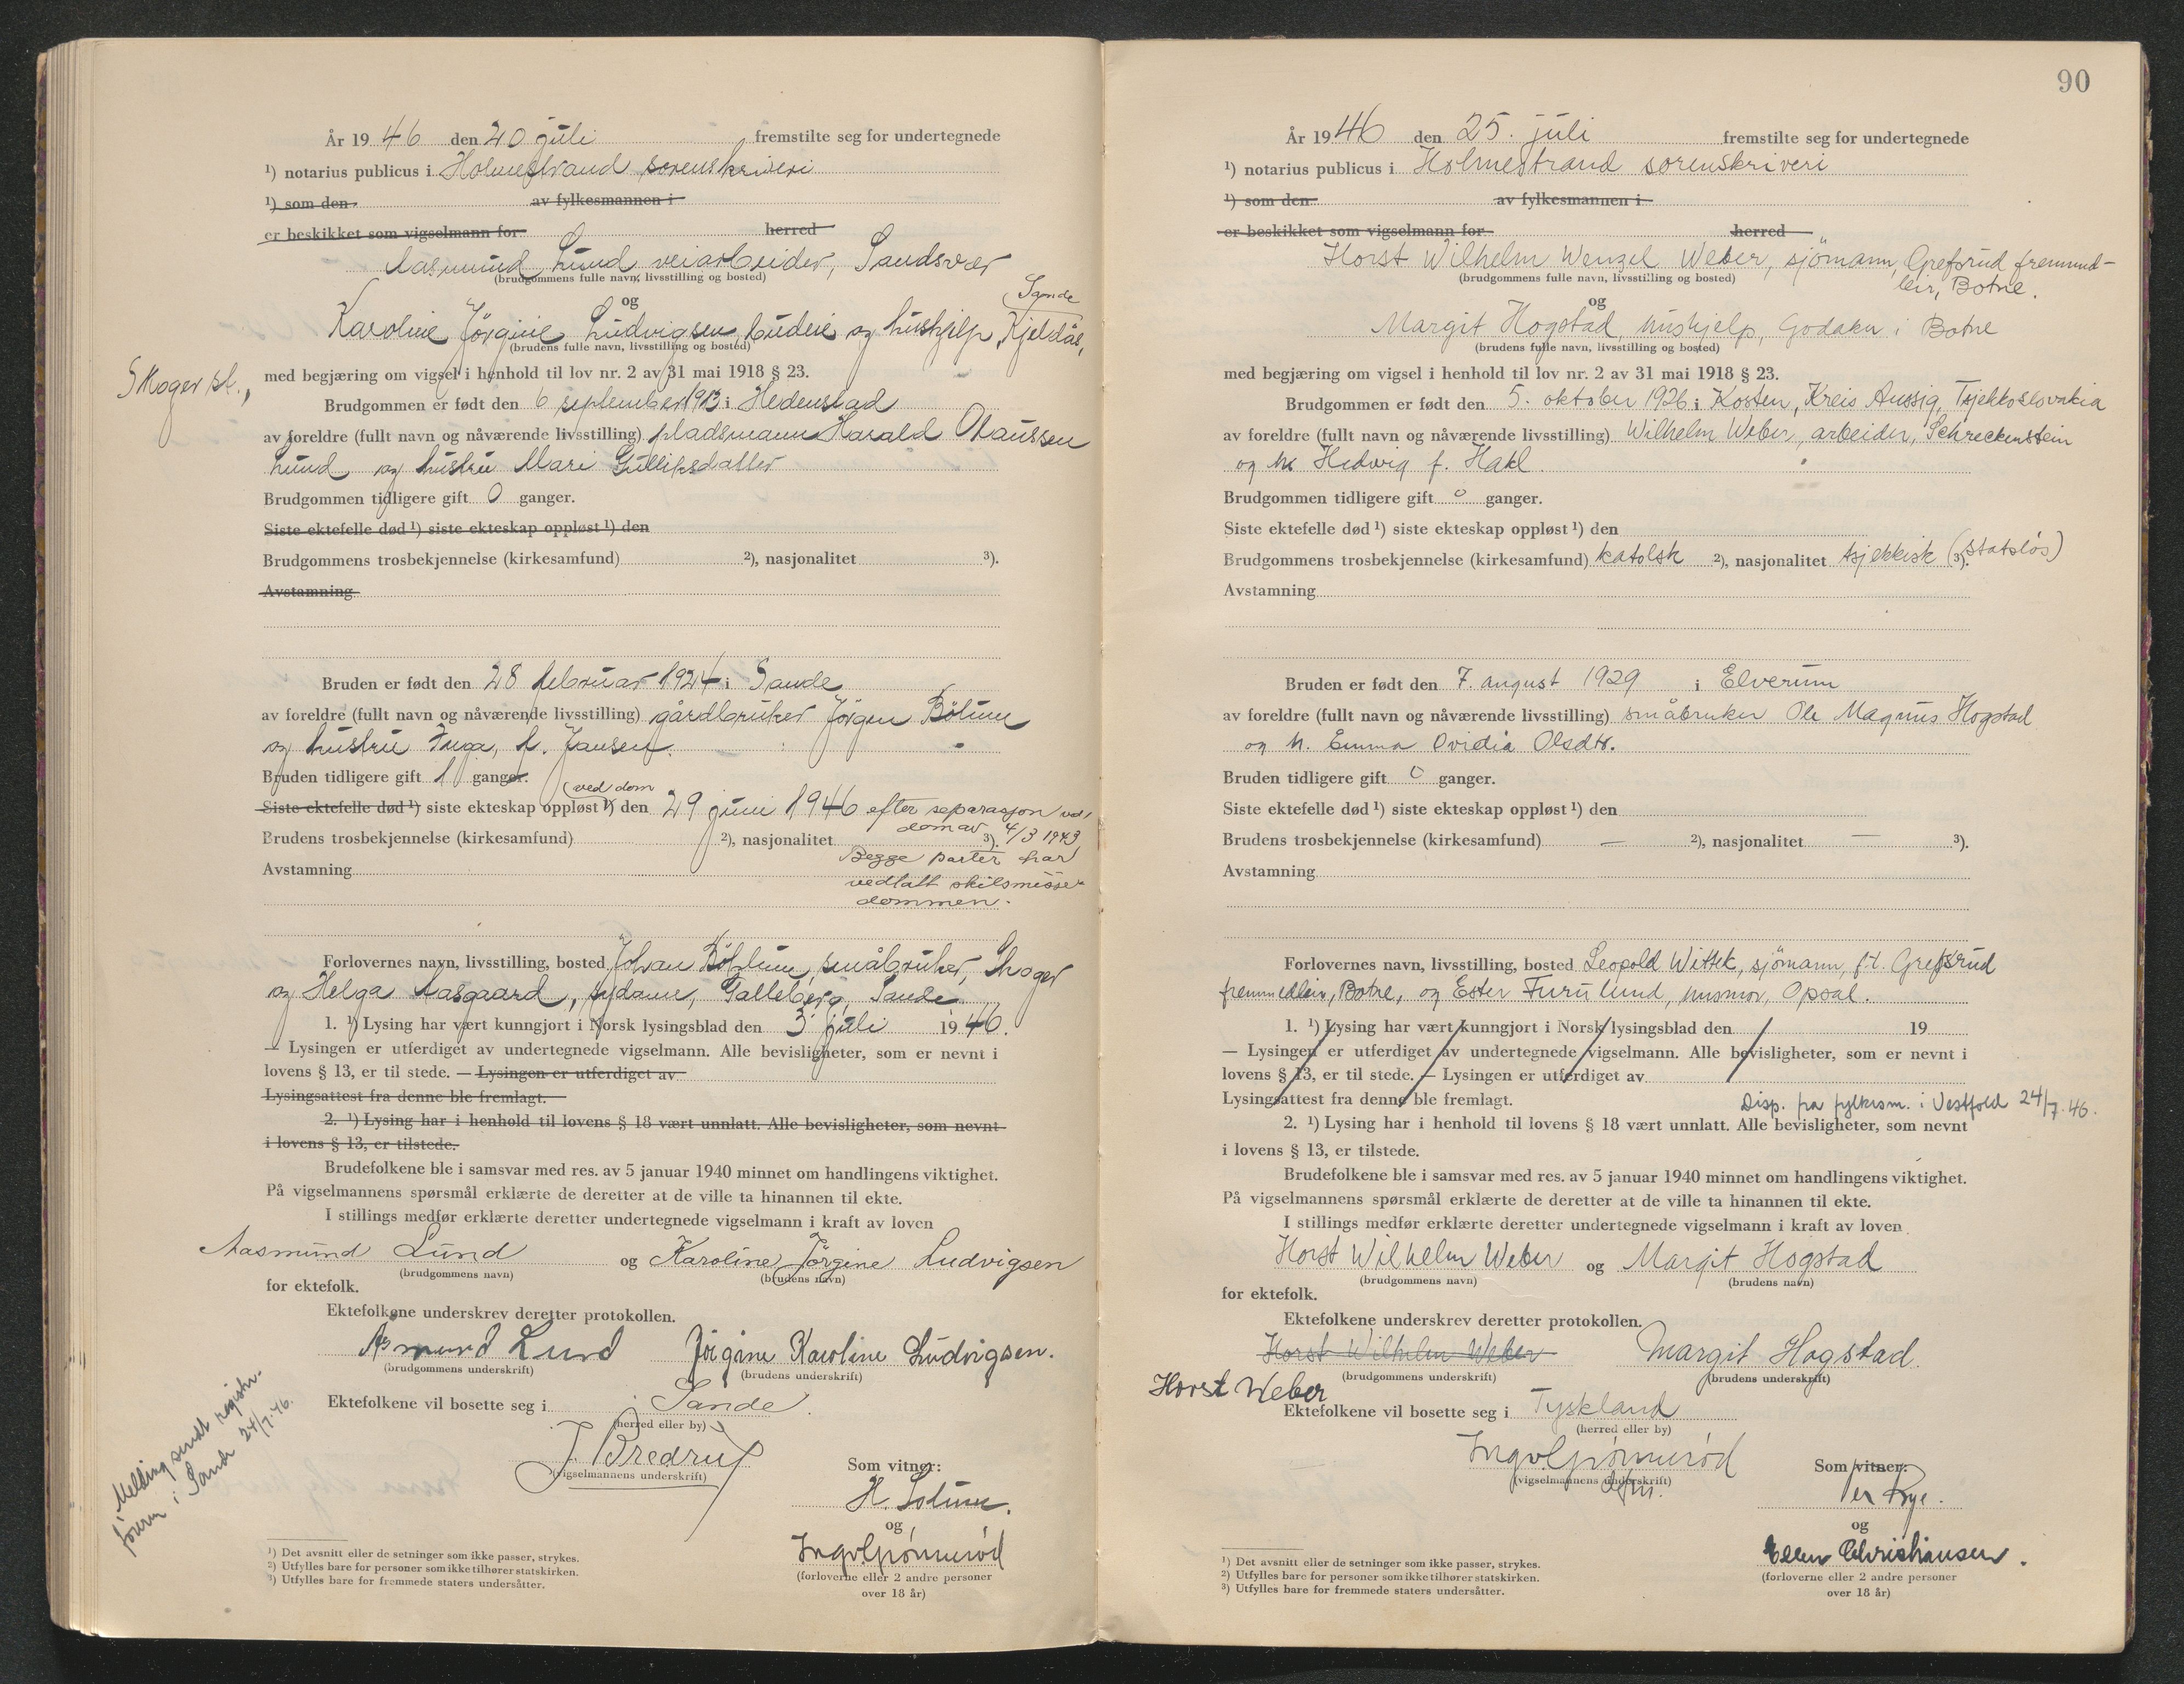 År 1946 den 20 juli fremstilte seg for undertegnede
¹) notarius publicus i Holmestrand sorenskriveri
¹) som den av fylkesmannen i
er beskikket som vigselmann for herred
Aasmund Lund veiarbeider, Sandsvær
(brudgommens fulle navn, livsstilling og bosted)
og
Sande
Karoline Jörgine Ludvigsen, budeie og hushjelp, Kjeldås,
(brudens fulle navn, livsstilling og bosted)
Skoger st.,
med begjæring om vigsel i henhold til lov nr. 2 av 31 mai 1918 § 23.
Brudgommen er født den 6 september 1913 i Hedenstad
av foreldre (fullt navn og nåværende livsstilling) pladsmann Harald Olaussen
Lund og hustru Mari Gulliksdatter
Brudgommen tidligere gift 0 ganger.
Siste ektefelle død ¹) siste ekteskap oppløst ¹) den
Brudgommens trosbekjennelse (kirkesamfund) ²), nasjonalitet ³).
Avstamning
Bruden er født den 28 februar 1924 i Sande
av foreldre (fullt navn og nåværende livsstilling) gårdbruker Jörgen Bölum
og hustru Inga, f. Jansen.
Bruden tidligere gift 1 ganger.
(ved dom
Siste ektefelle død ¹) siste ekteskap oppløst ¹) den 29 juni 1946 efter separasjon ved
dom av 4/3 1943
Brudens trosbekjennelse (kirkesamfund) ²), nasjonalitet ³).
Begge parter har
Avstamning
vedtatt skilsmisse-
dommen.
Forlovernes navn, livsstilling, bosted Johan Böhlum, småbruker, Skoger
og Helga Aasgaard, sydame, Galleberg, Sande.
1. ¹) Lysing har vært kunngjort i Norsk lysingsblad den 3 juli 1946.
— Lysingen er utferdiget av undertegnede vigselmann. Alle bevisligheter, som er nevnt i
lovens § 13, er til stede. — Lysingen er utferdiget av
Lysingsattest fra denne ble fremlagt.
2. ¹) Lysing har i henhold til lovens § 18 vært unnlatt. Alle bevisligheter, som nevnt
i lovens § 13, er tilstede.
Brudefolkene ble i samsvar med res. av 5 januar 1940 minnet om handlingens viktighet.
På vigselmannens spørsmål erklærte de deretter at de ville ta hinannen til ekte.
I stillings medfør erklærte deretter undertegnede vigselmann i kraft av loven
Aasmund Lund og Karoline Jörgine Ludvigsen
(brudgommens navn) (brudens navn)
for ektefolk.
Ektefolkene underskrev deretter protokollen.
Asmund Lund Jörgine Karoline Ludvigsen.
(brudgommens underskrift) (brudens underskrift)
Ektefolkene vil bosette seg i Sande.
(herred eller by)
J. Bredrup
(vigselmannens underskrift)
Som vitner:
H. Solum.
og
(forloverne eller 2 andre personer
over 18 år)
Melding sendt registr.
föreren i Sande 24/7.46.
¹) Det avsnitt eller de setninger som ikke passer, strykes.
²) Utfylles bare for personer som ikke tilhører statskirken.
³) Utfylles bare for fremmede staters undersåtter.
90
År 1946 den 25. juli fremstilte seg for undertegnede
¹) notarius publicus i Holmestrand sorenskriveri
¹) som den av fylkesmannen i
er beskikket som vigselmann for herred
Horst Wilhelm Wenzel Weber, sjömann, Grefsrud fremmed-
leir, Botne.
(brudgommens fulle navn, livsstilling og bosted)
og
Margit Hogstad, hushjelp, Godaker i Botne
(brudens fulle navn, livsstilling og bosted)
med begjæring om vigsel i henhold til lov nr. 2 av 31 mai 1918 § 23.
Brudgommen er født den 5. oktober 1926 i Kosten, Kreis Aussig, Tsjekkoslovakia
av foreldre (fullt navn og nåværende livsstilling) Wilhelm Weber, arbeider, Schreckenstein
og h. Hedwig f. Hakl.
Brudgommen tidligere gift 0 ganger.
Siste ektefelle død ¹) siste ekteskap oppløst ¹) den
Brudgommens trosbekjennelse (kirkesamfund) katolsk ²), nasjonalitet tsjekkisk (statslös) ³).
Avstamning
Bruden er født den 7. august 1929 i Elverum
av foreldre (fullt navn og nåværende livsstilling) småbruker Ole Magnus Hogstad
og h. Emma Ovidia Olsdtr.
Bruden tidligere gift 0 ganger.
Siste ektefelle død ¹) siste ekteskap oppløst ¹) den
Brudens trosbekjennelse (kirkesamfund) — ²), nasjonalitet — ³).
Avstamning
Forlovernes navn, livsstilling, bosted Leopold Wittek, sjömann, f.t. Grefsrud
fremmedleir, Botne, og Ester Furulund, husmor, Opsal.
1. ¹) Lysing har vært kunngjort i Norsk lysingsblad den 19
— Lysingen er utferdiget av undertegnede vigselmann. Alle bevisligheter, som er nevnt i
lovens § 13, er til stede. — Lysingen er utferdiget av
Lysingsattest fra denne ble fremlagt.
Disp. fra fylkesm. i Vestfold 24/7.46.
2. ¹) Lysing har i henhold til lovens § 18 vært unnlatt. Alle bevisligheter, som nevnt
i lovens § 13, er tilstede.
Brudefolkene ble i samsvar med res. av 5 januar 1940 minnet om handlingens viktighet.
På vigselmannens spørsmål erklærte de deretter at de ville ta hinannen til ekte.
I stillings medfør erklærte deretter undertegnede vigselmann i kraft av loven
Horst Wilhelm Weber og Margit Hogstad
(brudgommens navn) (brudens navn)
for ektefolk.
Ektefolkene underskrev deretter protokollen.
Horst Wilhelm Weber Margit Hogstad.
(brudgommens underskrift) (brudens underskrift)
Horst Weber
Ektefolkene vil bosette seg i Tyskland
(herred eller by)
(vigselmannens underskrift)
Som vitner:
og
Ellen Christiansen.
(forloverne eller 2 andre personer
over 18 år)
¹) Det avsnitt eller de setninger som ikke passer, strykes.
²) Utfylles bare for personer som ikke tilhører statskirken.
³) Utfylles bare for fremmede staters undersåtter.